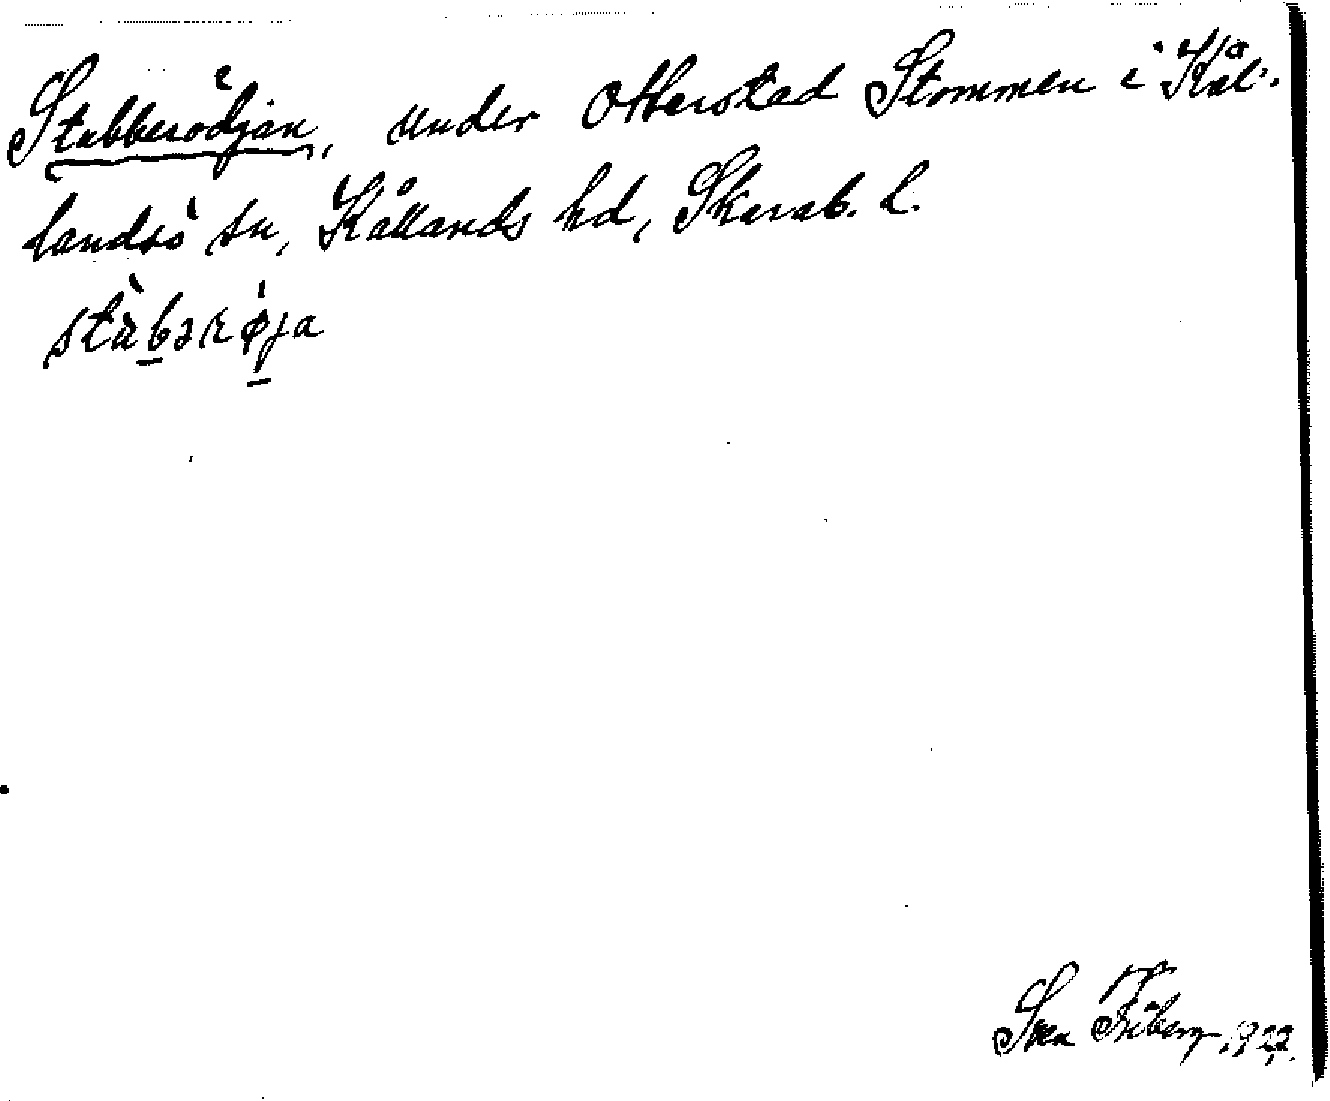 Stabberödjan, under Otterstad Stommen i Kål-
landsö sn, Kållands hd, Skarab. l.
stàbərø̀ja
Sven Friberg, 1927.